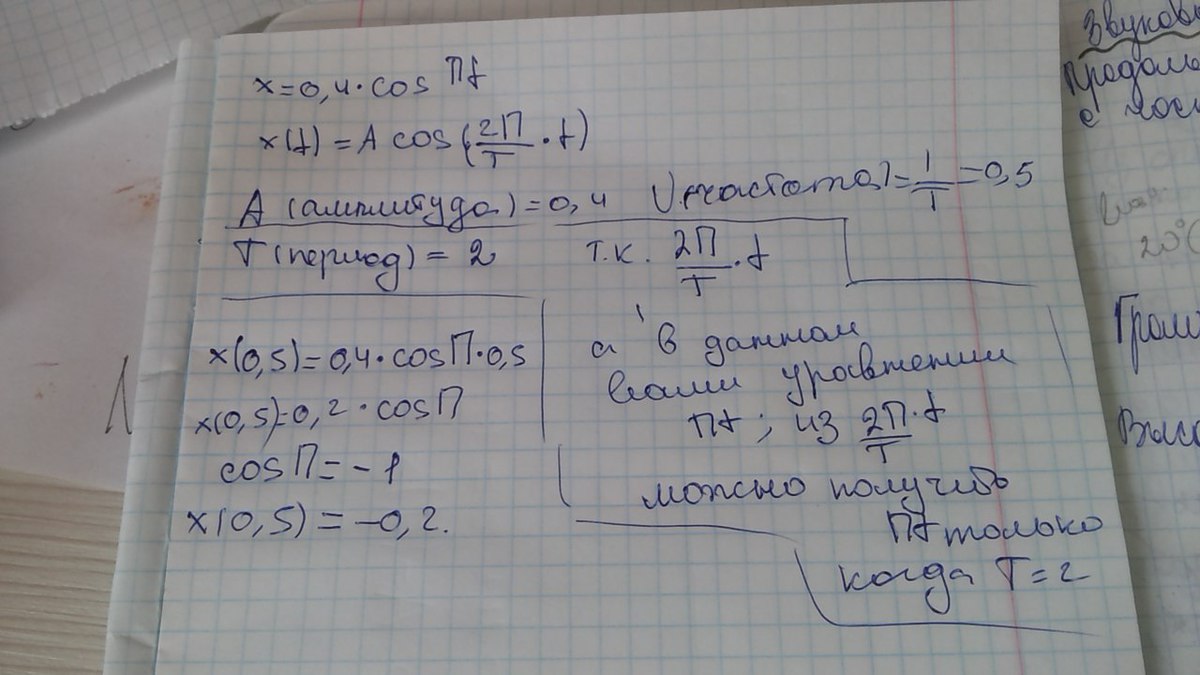 x=0,4·cos Пt
x(t) = A cos(2П/T · t)
A (амплитуда) = 0,4 ν(частота) = 1/T = 0,5
T (период) = 2 т.к. 2П/T · t
x(0,5)=0,4·cosП·0,5
x(0,5)=0,2·cosП
cosП=-1
x(0,5) = -0,2.
а в данном
вами уравнении
Пt; из 2П/T · t
можно получить
Пt только
когда T=2
Звуков
Продоль
с
20°C
Гром
Высо